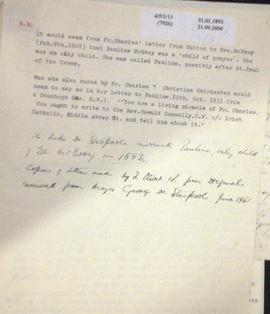 4/5/1/11
(7926)
01.01.1893
21.09.2000
N.B.
It would seem from Fr.Charles' letter from Sutton to Mrs.McEvoy
(Feb.8th.1882) that Pauline McEvoy was a 'child of prayer'. She
was an only child. She was called Pauline, possibly after St.Paul
of the Cross.
Was she also cured by Fr. Charles ? Christian Chichester would
seem to say so in her letter to Pauline, 10th. Oct. 1931 from
a Stanhope Gds. S.W.7. "You are a living miracle of Fr. Charles.
You ought to write to the Rev. Oswald Donnelly, c/o Irish
Catholic, Middle Abbey St. and tell him about it."
The Duke De Stacpoole married Pauline only child
of Mr. McEvoy in 1883.
Copies of letters made by from originals
received from Major George De Stacpoole June 1961